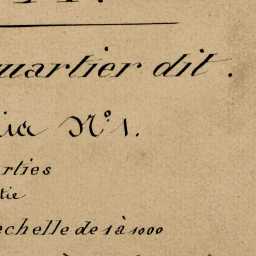 quartier dit.
ia N° 1.
rties
tie
echelle de 1 à 1000